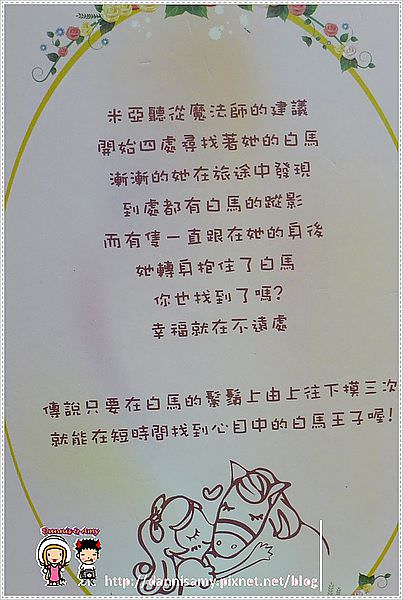 米亞聽從魔法師的建議
開始四處尋找著她的白馬
漸漸的她在旅途中發現
到處都有白馬的蹤影
而有隻一直跟在她的身後
她轉身抱住了白馬
你也找到了嗎?
幸福就在不遠處
傳說只要在白馬的鬃鬚上由上往下摸三次
就能在短時間找到心目中的白馬王子喔!
Dannis & Amy
http://dannisamy.pixnet.net/blog